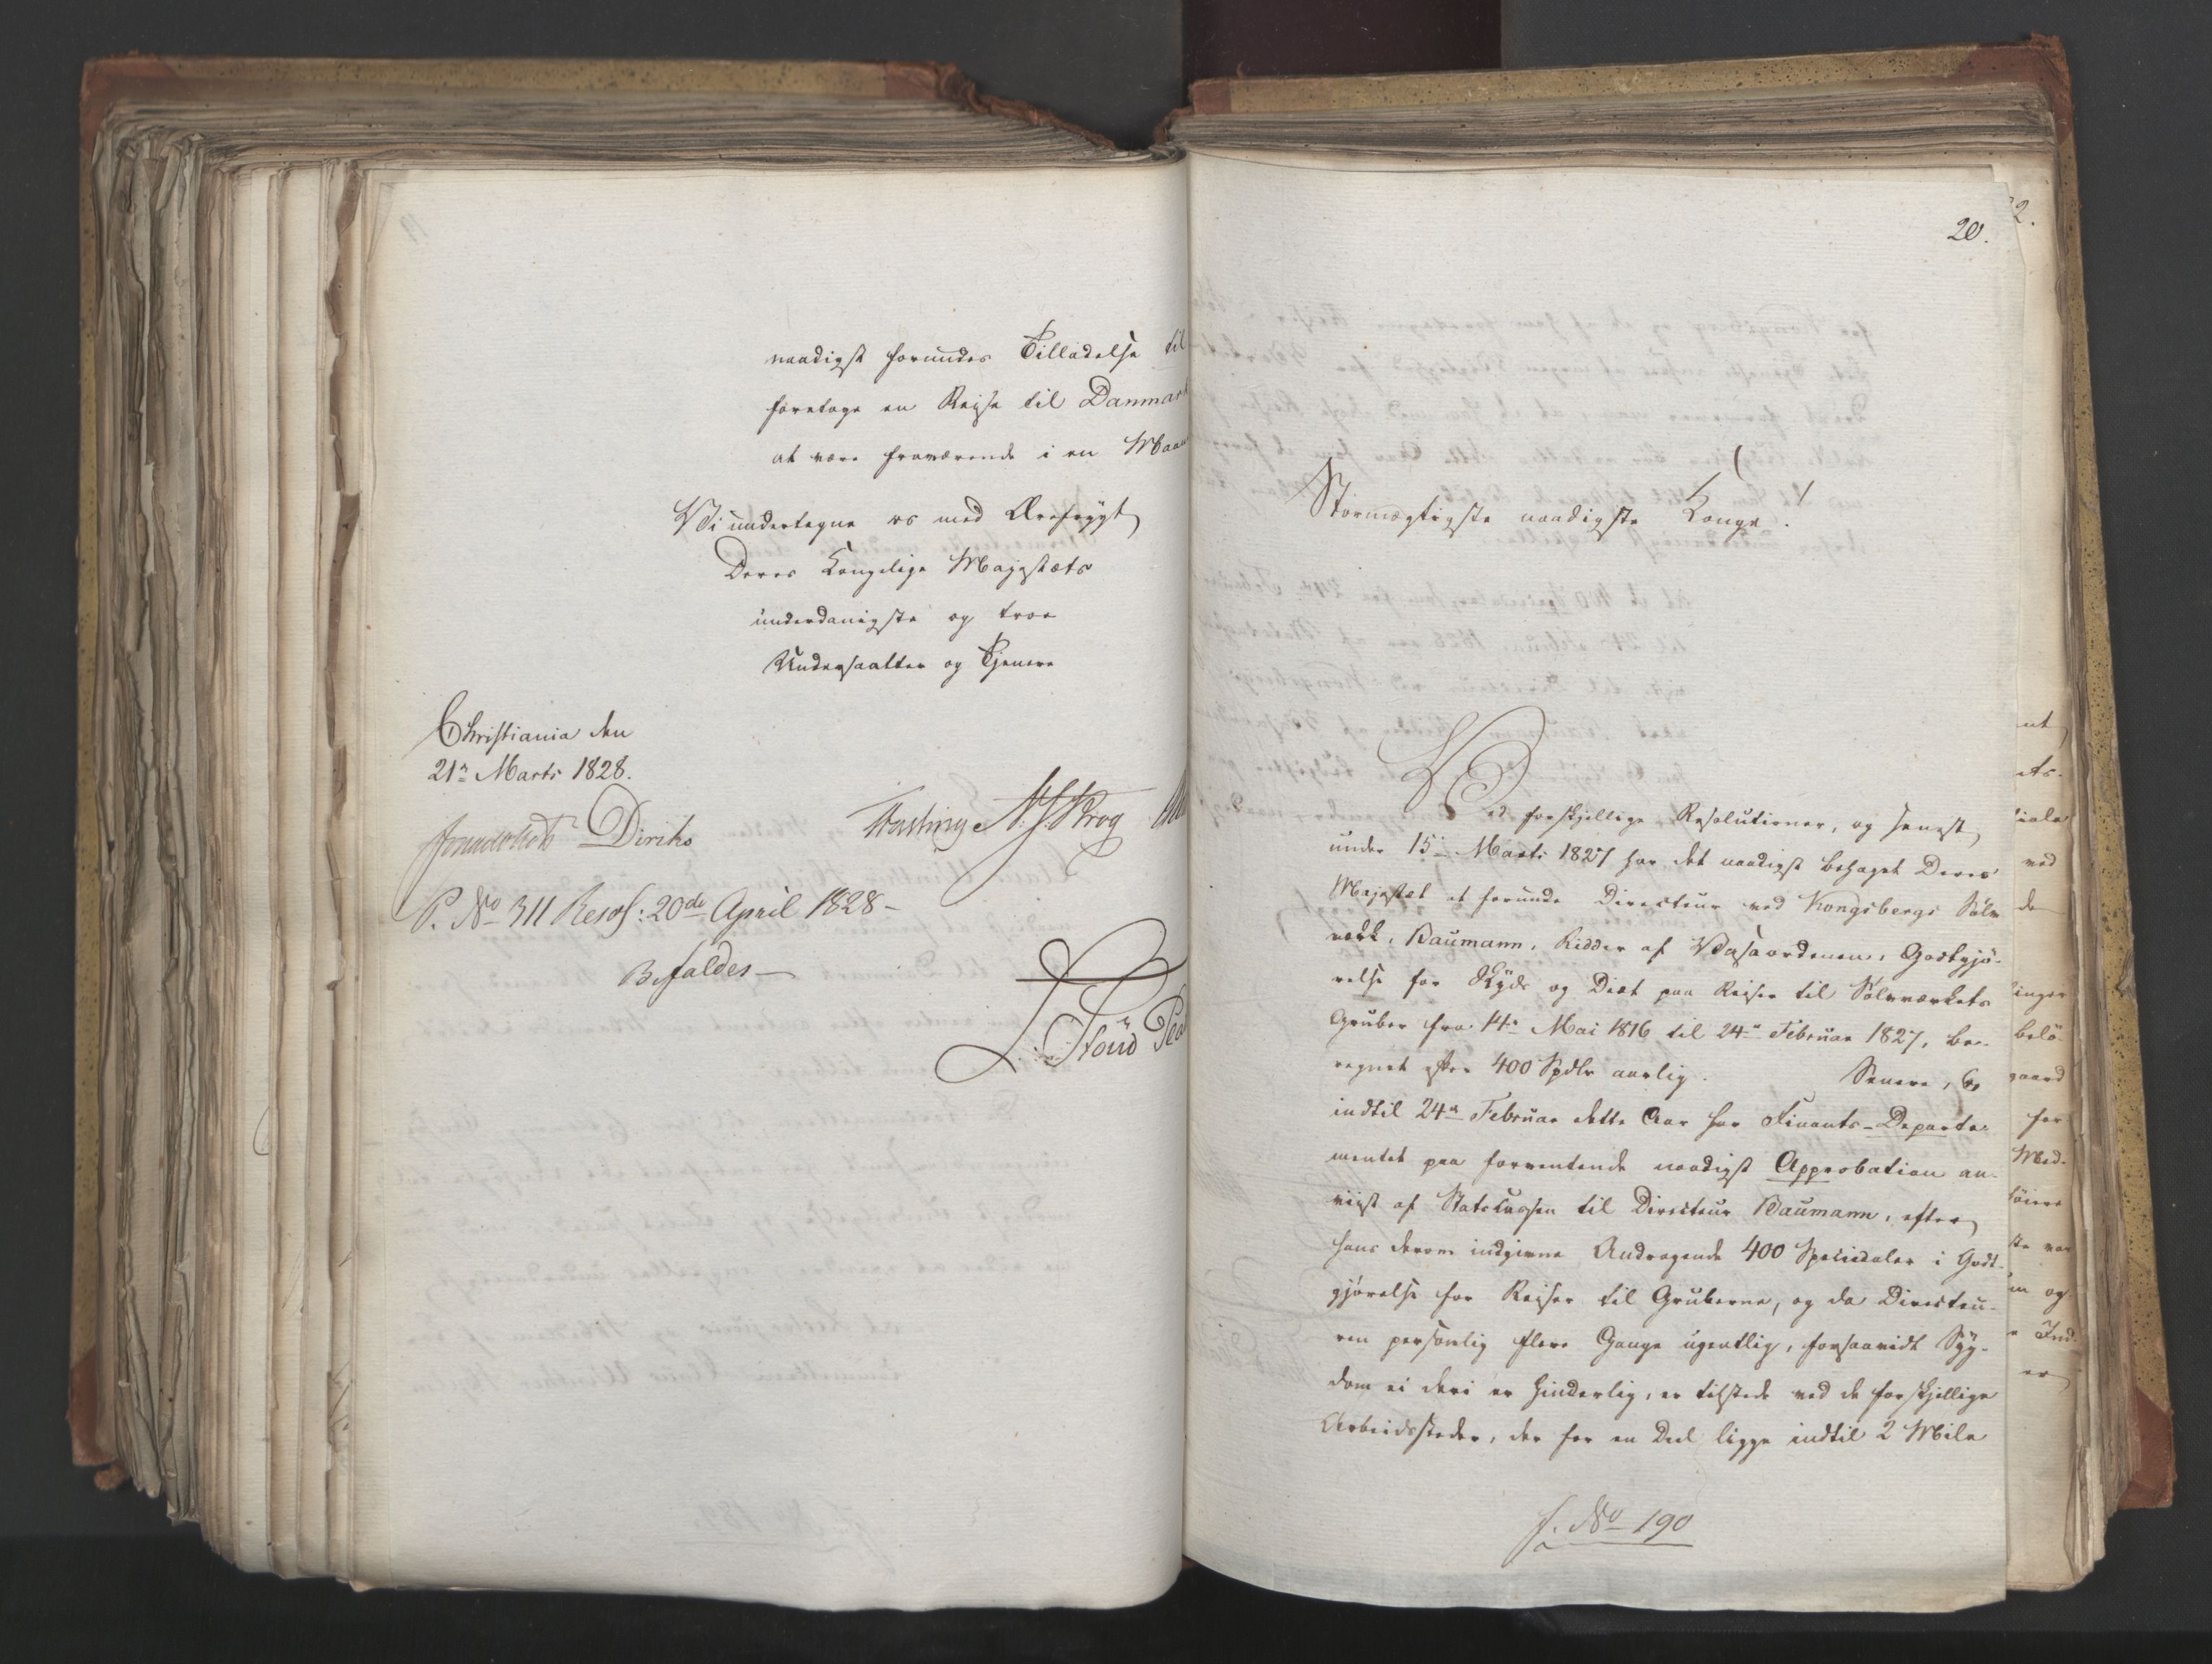 naadigst forundes Tilladelse til
foretage en Reise til Danmark
at være fraværende i en Maan
Vi undertegne os med Ærefrygt
Deres Kongelige Majestæts
underdanigste og troe
Undersaatter og Tjenere
Christiania den
21de Marts 1828.
Diriks
N. J. Krog
P. No 311 Resol: 20de April 1828 -
Befaldes -
20.
Stormægtigste naadigste Konge!
Ved forskjellige Resolutioner, og senest
under 15de Marts 1827 har det naadigst behaget Deres
Majestæt at forunde Directeur ved Kongsbergs Sölv
værk, Baumann, Ridder af Vasaordenen, Godtgjö-
relse for Skyds og Diæt paa Reiser til Sölvværkets
Gruber fra 14de Mai 1816 til 24de Februar 1827, be-
regnet efter 400 Spdlr aarlig. Senere, og
indtil 24de Februar dette Aar har Finants-Departe-
mentet paa forventende naadigst Approbation an-
viist af Statskassen til Directeur Baumann, efter
hans derom indgivne Andragende 400 Speciedaler i Godt-
gjörelse for Reiser til Gruberne, og da Directeu-
ren personlig flere Gange ugentlig, forsaavidt Syg-
dom ei deri er hinderlig, er tilstede ved de forskjellige
Arbeidssteder, der for en Deel ligge indtil 2 Mile
f. No 190